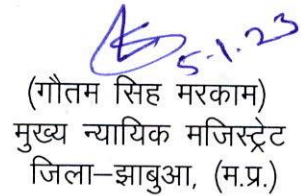 5.1.23
(गौतम सिंह मरकाम)
मुख्य न्यायिक मजिस्ट्रेट
जिला–झाबुआ, (म.प्र.)